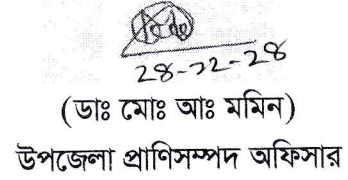 ২৪-১২-২৪
(ডাঃ মোঃ আঃ মমিন)
উপজেলা প্রাণিসম্পদ অফিসার